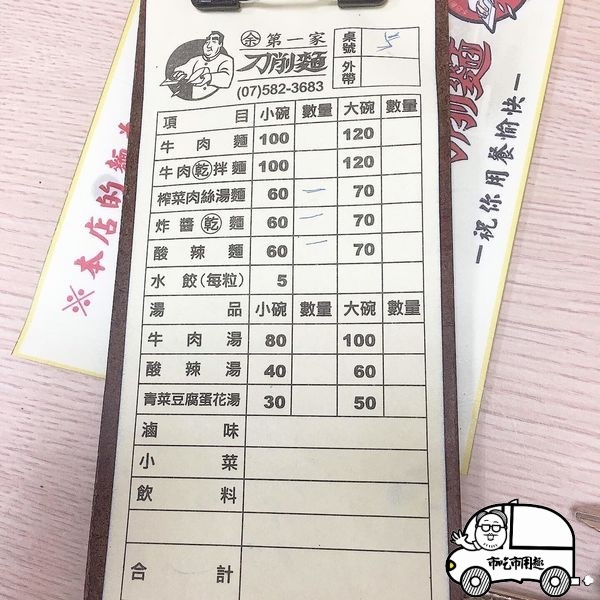 余 第一家
刀削麵
(07)582-3683
桌號 5
外帶
項目 小碗 數量 大碗 數量
牛肉麵 100 120
牛肉乾拌麵 100 120
榨菜肉絲湯麵 60 一 70
炸醬乾麵 60 二 70
酸辣麵 60 一 70
水餃(每粒) 5
湯品 小碗 數量 大碗 數量
牛肉湯 80 100
酸辣湯 40 60
青菜豆腐蛋花湯 30 50
滷味
小菜
飲料
合計
※本店的麵
削麵
—祝你用餐愉快—
市吃市用趣